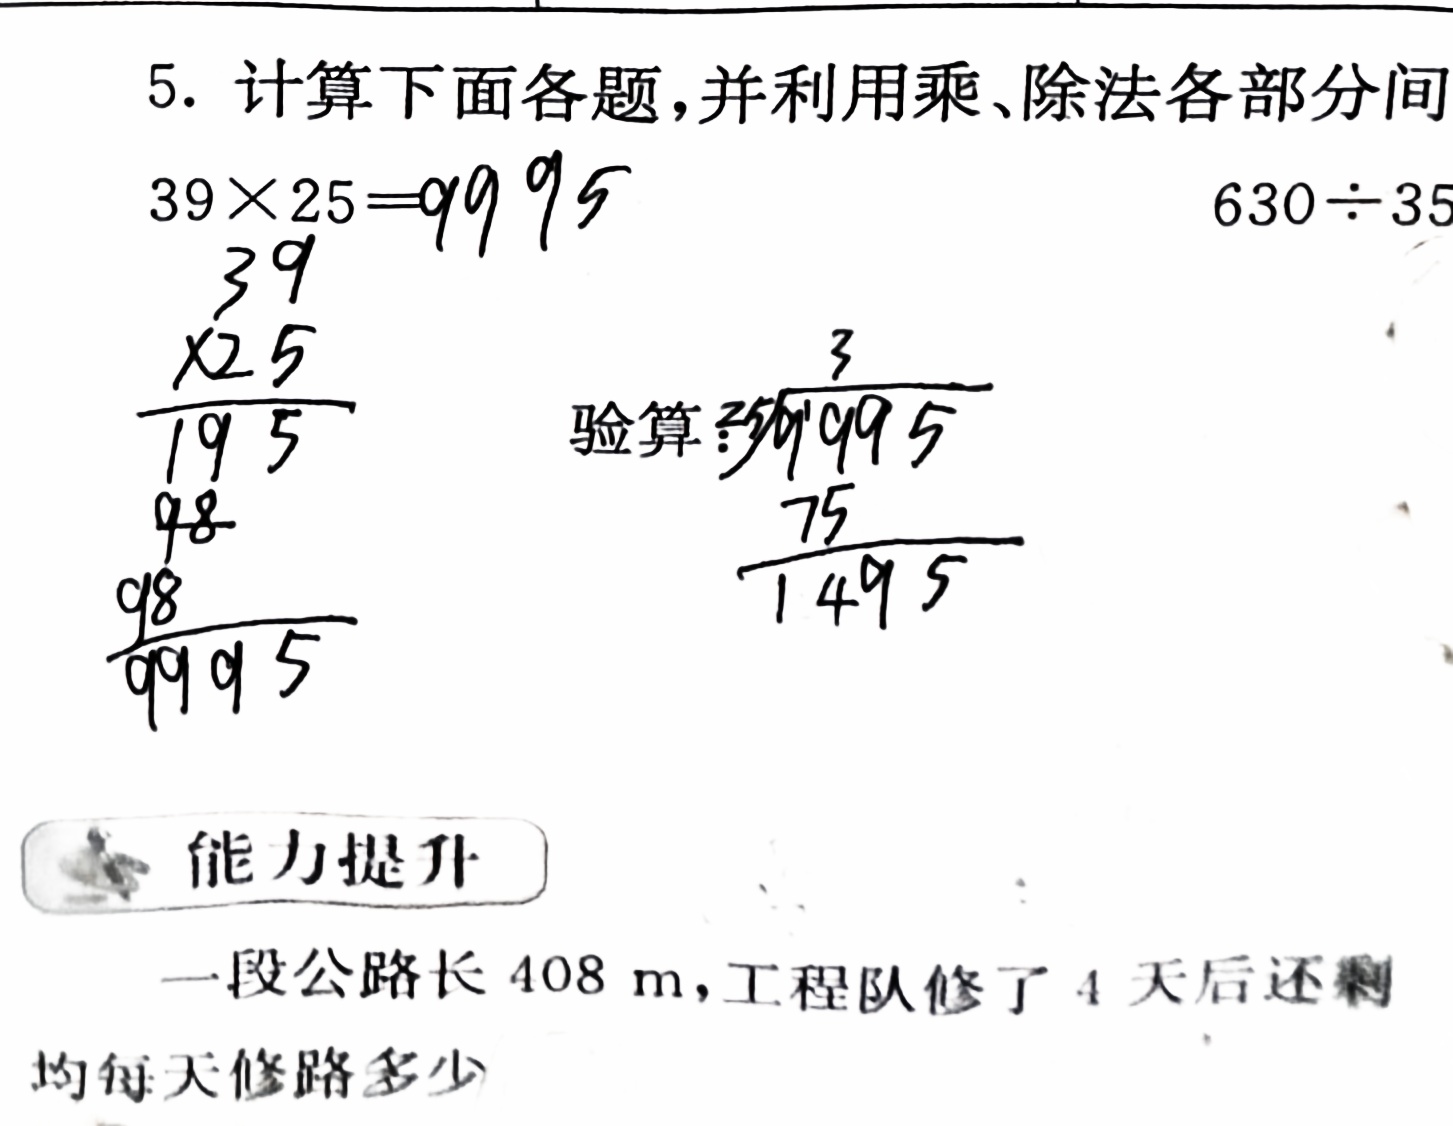 5. 计算下面各题,并利用乘、除法各部分间
39×25=9995 630÷35
39
×25
195
98
98
9995
3
验算:25 9995
75
1495
能力提升
一段公路长 408 m,工程队修了 4 天后还剩
均每天修路多少